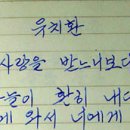 유치환
사랑을 받느니보다
들이 환히 내다
에 와서 너에게